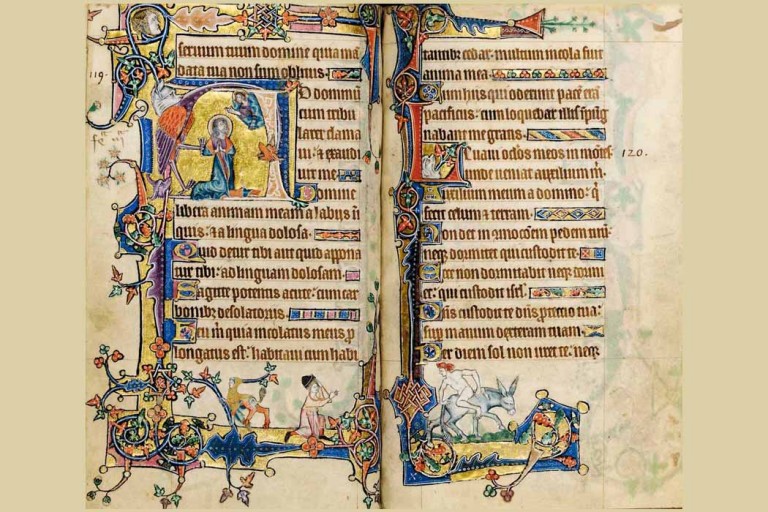 seruum tuum domine quia mā
data tua non sum oblitus
119.
AD dominū
cum tribu
larer clama
ui: & exaud
iuit me
Domine
libera animam meam a labijs in
iquis: & a lingua dolosa.
Quid detur tibi aut quid appona
tur tibi: ad linguam dolosam.
Sagitte potentis acute: cum car
bonibꝫ desolatoriis
Heu m̄ quia incolatus meus ꝓ
longatus est: habitaui cum habi
tantibꝫ cedar: multum incola fuit
anima mea.
Cum hiis qui oderunt pacē erā
pacificus: cum loquebar illis īpug
nabant me gratis.
Leuaui oclos meos ī montes
120.
unde ueniet auxilium m̄.
Auxilium meum a domino: q̄
fecit celum & terram.
Non det in cōmocōem pedem tuū:
neqꝫ dormitet qui custodit te.
Ecce non dormitabit neqꝫ dormi
et: qui custodit isrl̄.
Dn̄s custodit te dn̄s protectio tua:
suꝑ manum dexteram tuam.
Per diem sol non uret te: neqꝫ